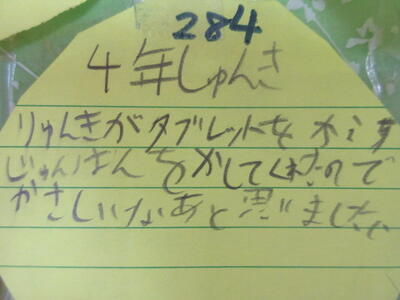 284
4年しゅんき
りゅんきがタブレットをかえす
じゅんばんをかしてくれたので
やさしいなあと思いました